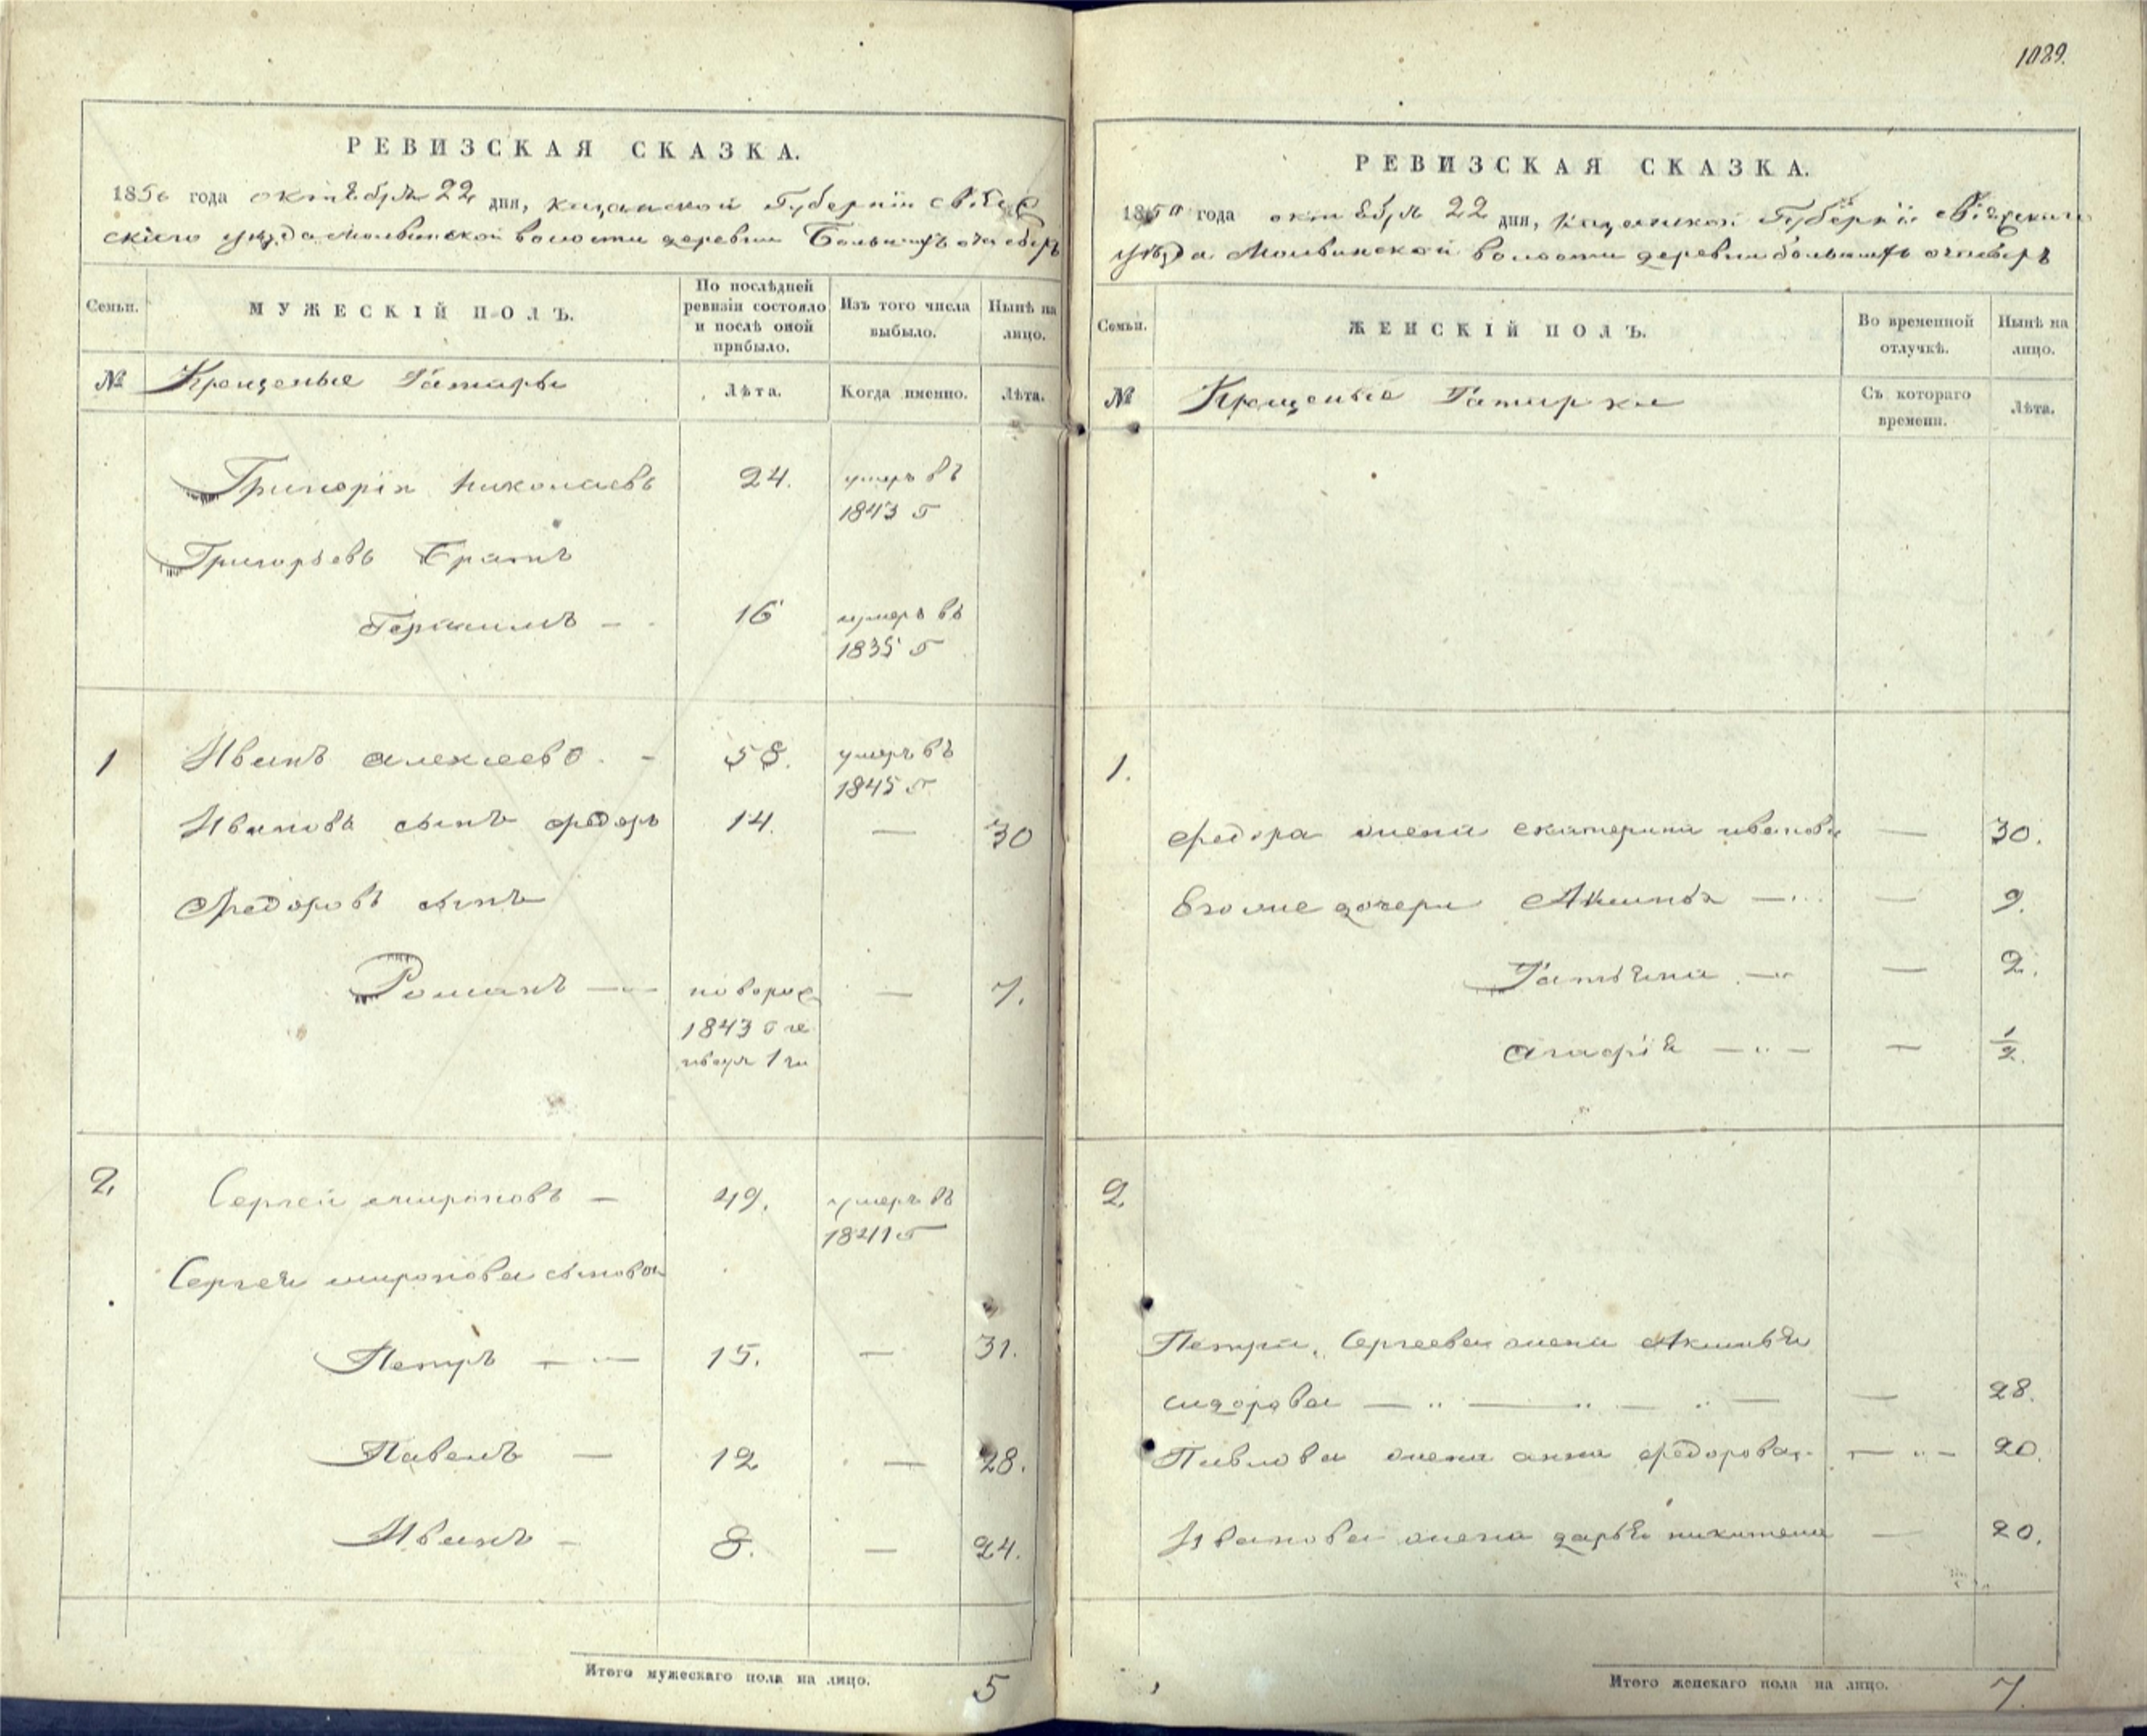 1089.
РЕВИЗСКАЯ СКАЗКА.
1850 года октября 22 дня, казанской Губернiи свiяж
скаго уѣзда молвинской волости деревни
Семьи.
МУЖЕСКIЙ ПОЛЪ.
По послѣдней ревизiи состояло и послѣ оной прибыло.
Изъ того числа выбыло.
Нынѣ на лицо.
№ Крещеные Татары
Лѣта.
Когда именно.
Лѣта.
Григорiй Николаевъ 24. умеръ въ
1843 г
Григорьевъ Братъ
Герасимъ 16 умеръ въ
1835 г
1 Иванъ алексеевъ 58. умеръ въ
1845 г
Иванова сынъ федоръ 14. — 30
Федоровъ сынъ
Романъ — новорож — 7.
1843 г
1 го
2. Сергей мироновъ — 49. умеръ въ
1841 г
Сергея миронова сыновья
Петръ — 15. — 31.
Павелъ — 12 — 28.
Иванъ — 8. — 24.
Итого мужескаго пола на лицо. 5
РЕВИЗСКАЯ СКАЗКА.
1850 года октября 22 дня, казанской Губернiи Свiяжскаго
уѣзда Молвинской волости деревни
Семьи.
ЖЕНСКIЙ ПОЛЪ.
Во временной отлучкѣ.
Нынѣ на лицо.
№ Крещеные Татарки
Съ котораго времени.
Лѣта.
1.
федора жена екатерина иванова — 30.
Его же дочери Акилина — 9.
Татьяна — 2.
агафiя — — ½.
2.
Петра Сергеева жена Акилина
сидорова — 28.
Павлова жена анна федорова — 20.
Иванова жена дарья никитина — 20.
Итого женскаго пола на лицо. 7.